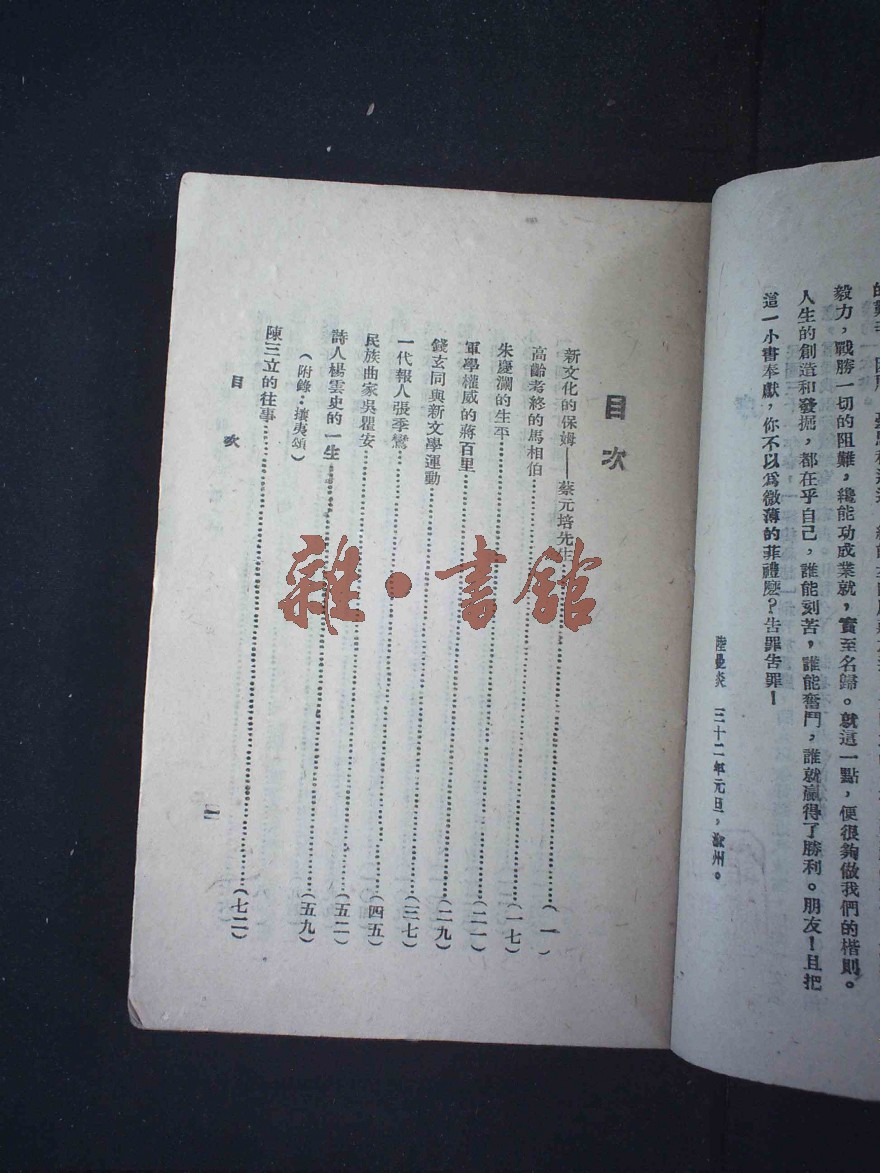 毅力,戰勝一切的阻難,纔能功成業就,實至名歸。就這一點,便很夠做我們的楷則。
人生的創造和發掘,都在乎自己,誰能刻苦,誰能奮鬥,誰就贏得了勝利。朋友!且把
這一小書奉獻,你不以爲微薄的菲禮麽?告罪告罪!
陸曼炎 三十二年元旦,渝州。
目次
新文化的保姆——蔡元培先生……(一)
高齡考終的馬相伯……(一七)
朱慶瀾的生平……(二一)
軍學權威的蔣百里……(二九)
錢玄同與新文學運動……(三七)
一代報人張季鸞……(四五)
民族曲家吳瞿安……(五二)
詩人楊雲史的一生……(五九)
(附錄:攘夷頌)
陳三立的往事……(七二)
目次
一
雜·書館